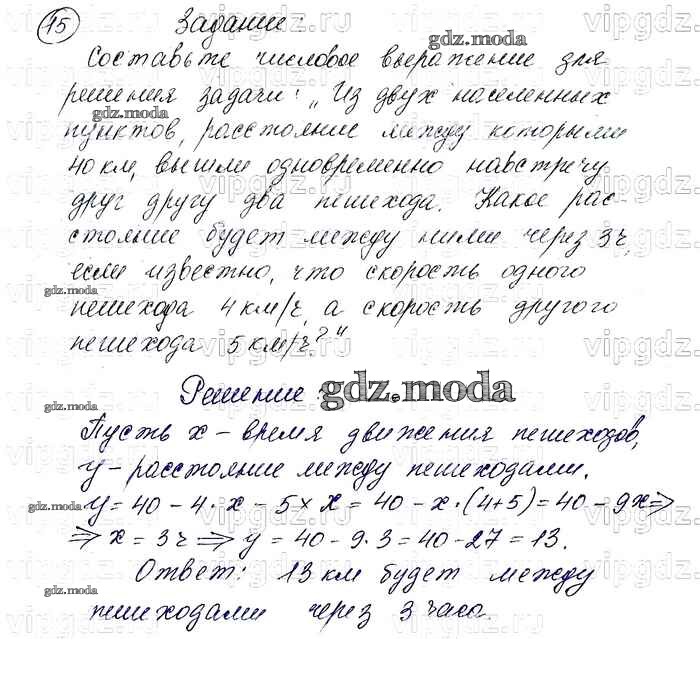 15 Задание:
Составьте числовое выражение для
решения задачи: „Из двух населенных
пунктов, расстояние между которыми
40 км, вышли одновременно навстречу
друг другу два пешехода. Какое рас-
стояние будет между ними через 3 ч,
если известно, что скорость одного
пешехода 4 км/ч, а скорость другого
пешехода 5 км/ч?"
Решение:
Пусть x – время движения пешеходов,
y – расстояние между пешеходами.
y = 40 – 4 · x – 5 × x = 40 – x · (4+5) = 40 – 9x ⇒
⇒ x = 3 ч ⇒ y = 40 – 9 · 3 = 40 – 27 = 13.
Ответ: 13 км будет между
пешеходами через 3 часа.
gdz.moda
gdz.moda
gdz.moda
gdz.moda
gdz.moda
gdz.moda
gdz.moda
vipgdz